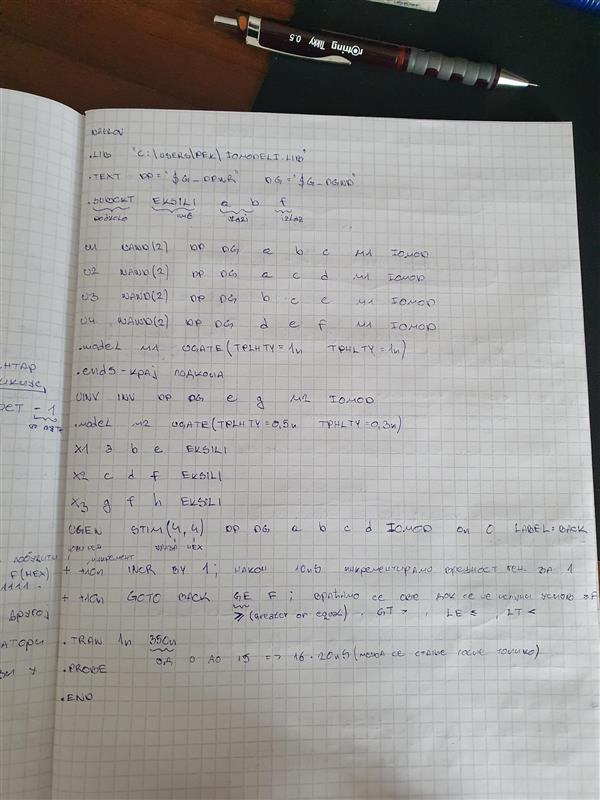 rotring Tikky 0.5
NASLOV
.LIB "C:\USERS\PEK\IOMODELI.LIB"
.TEXT DP="$G_DPWR" DG="$G_DGND"
.SUBCKT EKSILI a b f
подколо име ulazi izlaz
U1 NAND(2) DP DG a b c M1 IOMOD
U2 NAND(2) DP DG a c d M1 IOMOD
U3 NAND(2) DP DG b c e M1 IOMOD
U4 NAND(2) DP DG d e f M1 IOMOD
.model M1 UGATE(TPLHTY=1n TPHLTY=1n)
.ends - крај подкола
UINV INV DP DG e g M2 IOMOD
.model M2 UGATE(TPLHTY=0,5n TPHLTY=0,3n)
X1 a b e EKSILI
X2 c d f EKSILI
X3 g f h EKSILI
UGEN STIM(4,4) DP DG a b c d IOMOD 0n 0 LABEL=BACK
инкремент HEX
+ +10n INCR BY 1; након 10ns инкрементирамо вредност ген. за 1
+ +10n GOTO BACK GE F; враћамо се све док се не испуни услов ≥F
≥ (greater or equal), GT >, LE ≤, LT <
.TRAN 1n 350n
од 0 до 15 => 16·20ns (мења се стање после толико)
.PROBE
.END
НТАР
- 1
побудити
F(HEX)
1111.
другој
атори